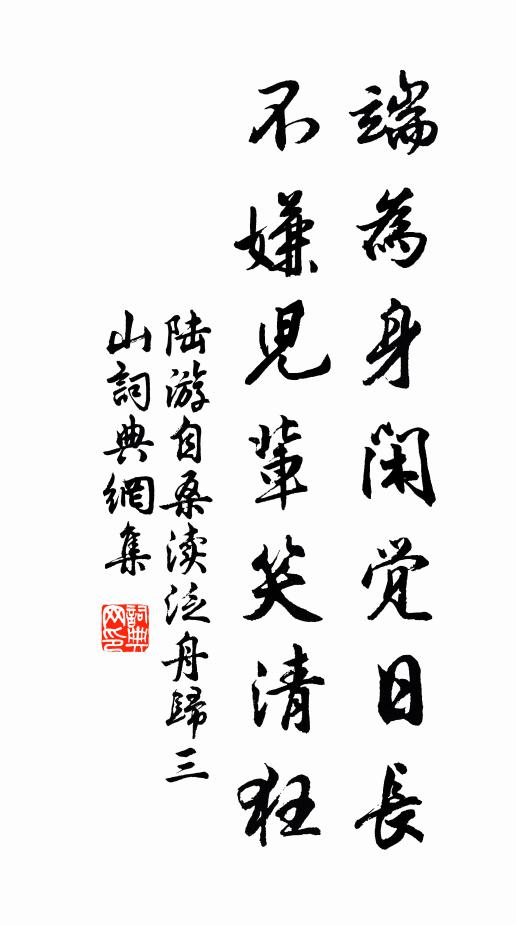 端為身閑觉日長
不嫌児輩笑清狂
陆游自桑渎泛舟歸三
山詞典網集
詞典
网印